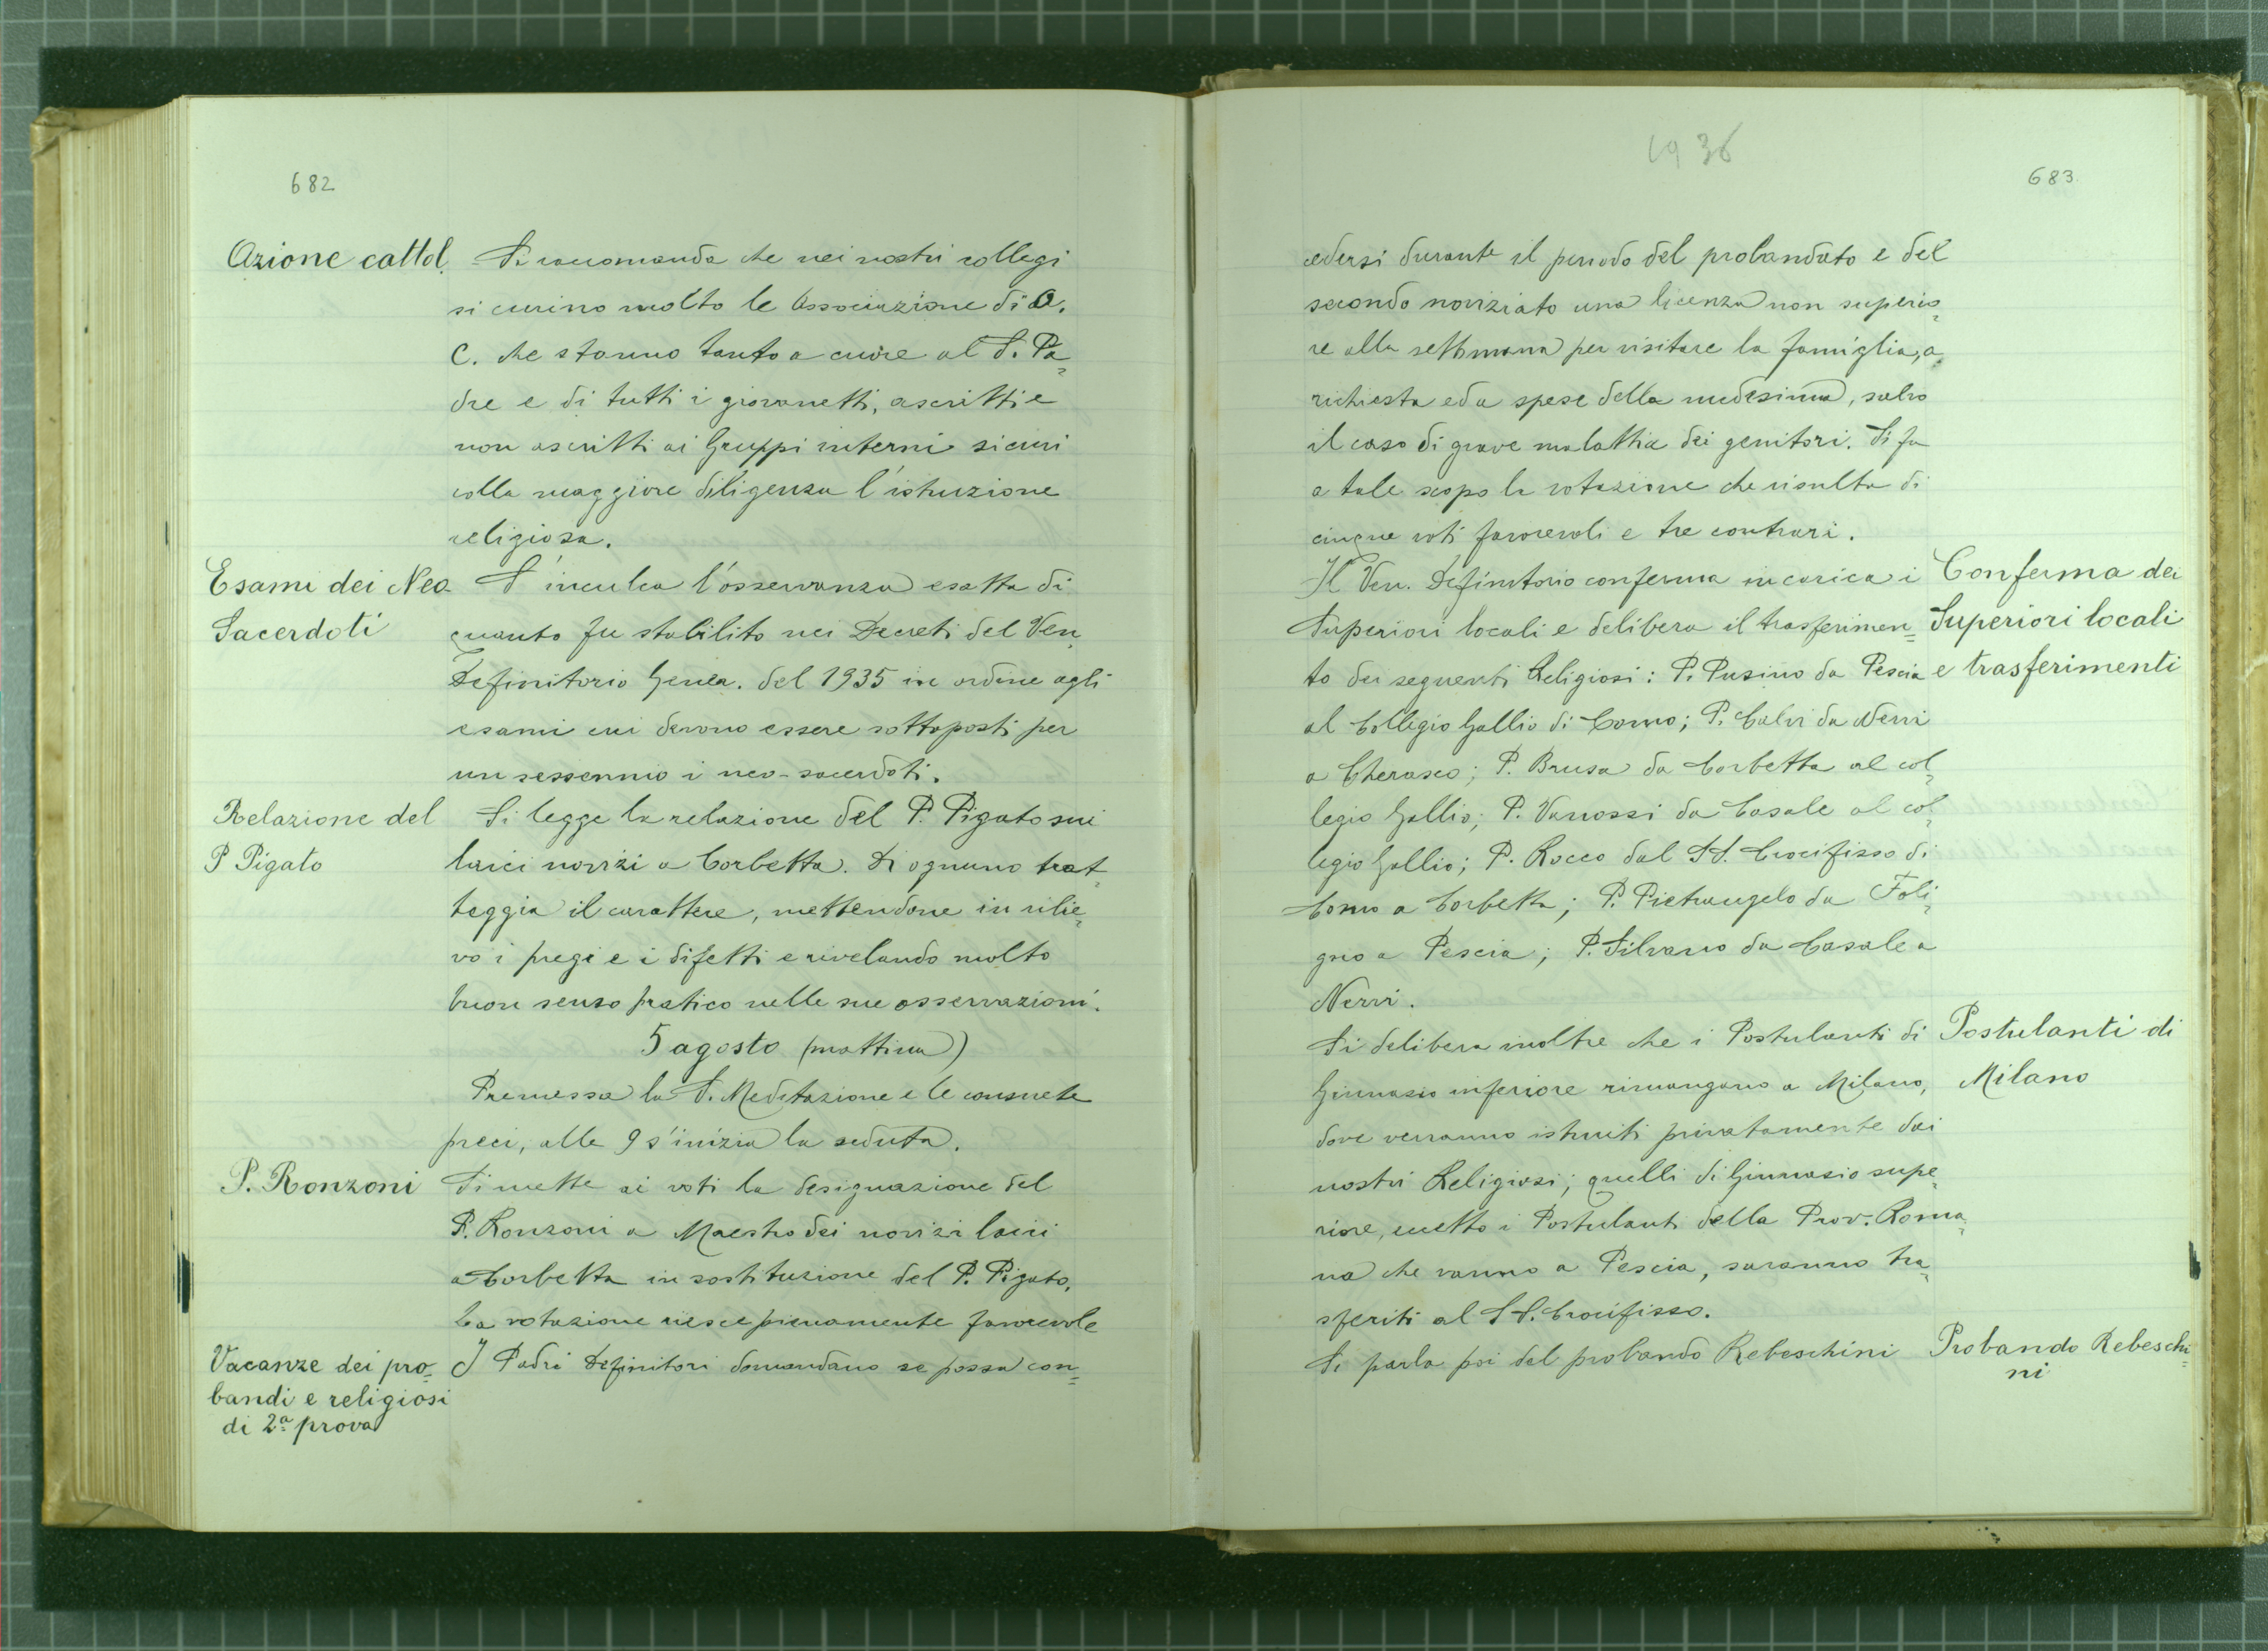 682
Azione cattol.
Si raccomanda che nei nostri collegi
si curino molto le Associazione di A.
C. che stanno tanto a cuore al S. Pa=
dre e di tutti i giovanetti, ascritti e
non ascritti ai Gruppi interni si curi
colla maggiore diligenza l'istruzione
religiosa.
Esami dei Neo-
Sacerdoti
S'inculca l'osservanza esatta di
quanto fu stabilito nei Decreti del Ven.
Definitorio Gener. del 1935 in ordine agli
esami cui devono essere sottoposti per
un sessennio i neo-sacerdoti.
Relazione del
P Pigato
Si legge la relazione del P. Pigato sui
laici novizi a Corbetta. Di ognuno trat=
teggia il carattere, mettendone in rilie=
vo i pregi e i difetti e rivelando molto
buon senso pratico nelle sue osservazioni.
5 agosto (mattina)
Premessa la S. Meditazione e le consuete
preci, alle 9 s'inizia la seduta.
P. Ronzoni
Si mette ai voti la designazione del
P. Ronzoni a Maestro dei novizi laici
a Corbetta in sostituzione del P. Pigato.
La votazione riesce pienamente favorevole
Vacanze dei pro=
bandi e religiosi
di 2ª prova
I Padri Definitori domandano se possa con=
1936
683
cedersi durante il periodo del probandato e del
secondo noviziato una licenza non superio=
re alla settimana per visitare la famiglia, a
richiesta ed a spese della medesima, salvo
il caso di grave malattia dei genitori. Si fa
a tale scopo la votazione che risulta di
cinque voti favorevoli e tre contrari.
Il Ven. Definitorio conferma in carica i
Superiori locali e delibera il trasferimen=
to dei seguenti Religiosi: P. Pusino da Pescia
al Collegio Gallio di Como; P. Calvi da Nervi
a Cherasco; P. Brusa da Corbetta al col=
legio Gallio; P. Vanossi da Casale al col=
legio Gallio; P. Rocco dal SS. Crocifisso di
Como a Corbetta; P. Pietrangelo da Foli=
gno a Pescia; P. Silvano da Casale a
Nervi.
Conferma dei
Superiori locali
e trasferimenti
Si delibera inoltre che i Postulanti di
Ginnasio inferiore rimangano a Milano,
dove verranno istruiti privatamente dai
nostri Religiosi; quelli di Ginnasio supe=
riore, eccetto i Postulanti della Prov. Roma=
na che vanno a Pescia, saranno tra=
sferiti al SS. Crocifisso.
Postulanti di
Milano
Si parla poi del probando Rebeschini
Probando Rebeschi=
ni